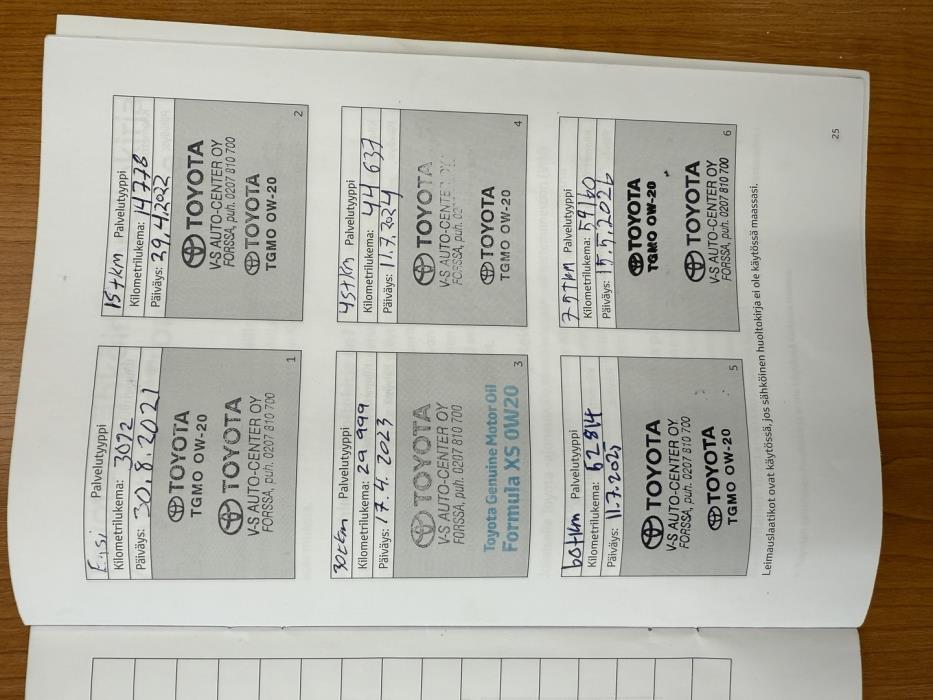 Ensi Palvelutyyppi
Kilometrilukema: 3092
Päiväys: 30.8.2021
TOYOTA
TGMO OW-20
TOYOTA
V-S AUTO-CENTER OY
FORSSA, puh. 0207 810 700
1
15tkm Palvelutyyppi
Kilometrilukema: 14778
Päiväys: 29.4.2022
TOYOTA
V-S AUTO-CENTER OY
FORSSA, puh. 0207 810 700
TOYOTA
TGMO OW-20
2
30tkm Palvelutyyppi
Kilometrilukema: 29 999
Päiväys: 17.4.2023
TOYOTA
V-S AUTO-CENTER OY
FORSSA, puh. 0207 810 700
Toyota Genuine Motor Oil
Formula XS 0W20
3
45tkm Palvelutyyppi
Kilometrilukema: 44 637
Päiväys: 11.7.2024
TOYOTA
V-S AUTO-CENTER OY
FORSSA, puh.
TOYOTA
TGMO OW-20
4
60tkm Palvelutyyppi
Kilometrilukema:
Päiväys: 11.7.2025
TOYOTA
V-S AUTO-CENTER OY
FORSSA, puh. 0207 810 700
TOYOTA
TGMO OW-20
5
Palvelutyyppi
Kilometrilukema:
Päiväys:
TOYOTA
TGMO OW-20
TOYOTA
V-S AUTO-CENTER OY
FORSSA, puh. 0207 810 700
6
Leimauslaatikot ovat käytössä, jos sähköinen huoltokirja ei ole käytössä maassasi.
25